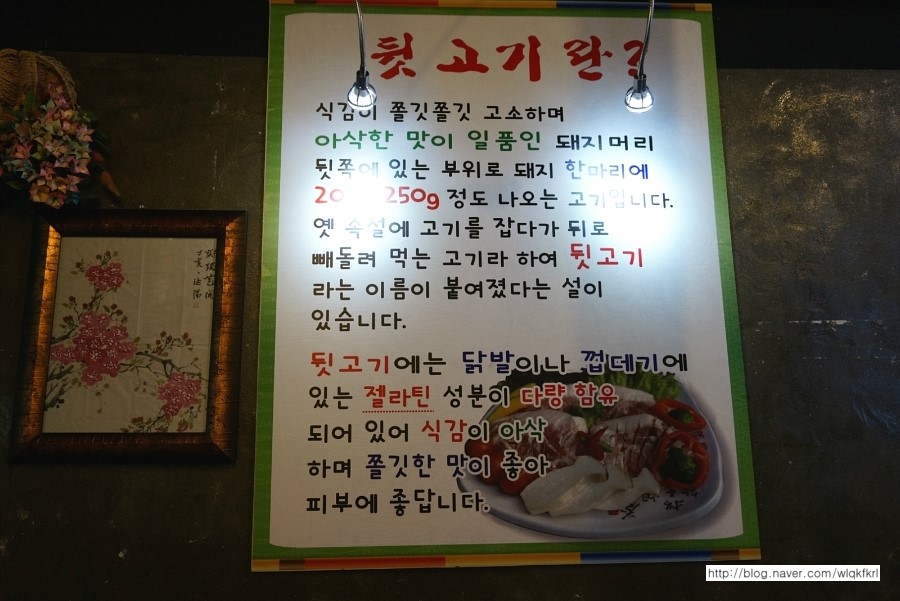 뒷고기란?
식감이 쫄깃쫄깃 고소하며
아삭한 맛이 일품인 돼지머리
뒷쪽에 있는 부위로 돼지 한마리에
250g 정도 나오는 고기입니다.
옛 속설에 고기를 잡다가 뒤로
빼돌려 먹는 고기라 하여 뒷고기
라는 이름이 붙여졌다는 설이
있습니다.
뒷고기에는 닭발이나 껍데기에
있는 젤라틴 성분이 다량 함유
되어 있어 식감이 아삭
하며 쫄깃한 맛이 좋아
피부에 좋답니다.
http://blog.naver.com/wlqkfkrl